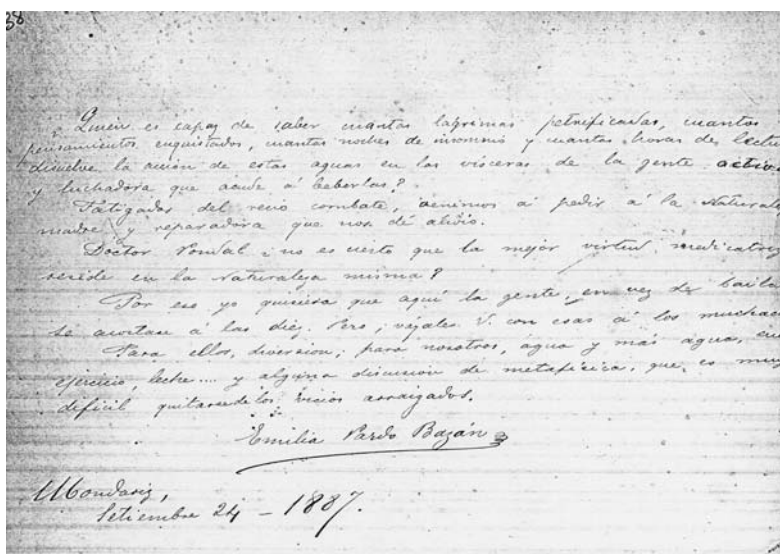 38
¿Quién es capaz de saber cuantas lágrimas petrificadas, cuantos
pensamientos enquistados, cuantas noches de insomnio y cuantas horas de lectu
disuelve la acción de estas aguas en las vísceras de la gente activa
y luchadora que acude á beberlas?
Fatigados del recio combate, venimos á pedir á la Naturale
madre y reparadora que nos dé alivio.
Doctor Pondal ¿no es cierto que la mejor virtud medicatriz
reside en la Naturaleza misma?
Por eso yo quisiera que aquí la gente, en vez de baila
se acostase á las diez. Pero, váyales V. con esas á los muchac
Para ellos, diversion; para nosotros, agua y más agua,
ejercicio, leche.... y alguna discusion de metafísica, que es muy
difícil quitarse de los vicios arraigados.
Emilia Pardo Bazán
Mondariz,
Setiembre 24 - 1887.